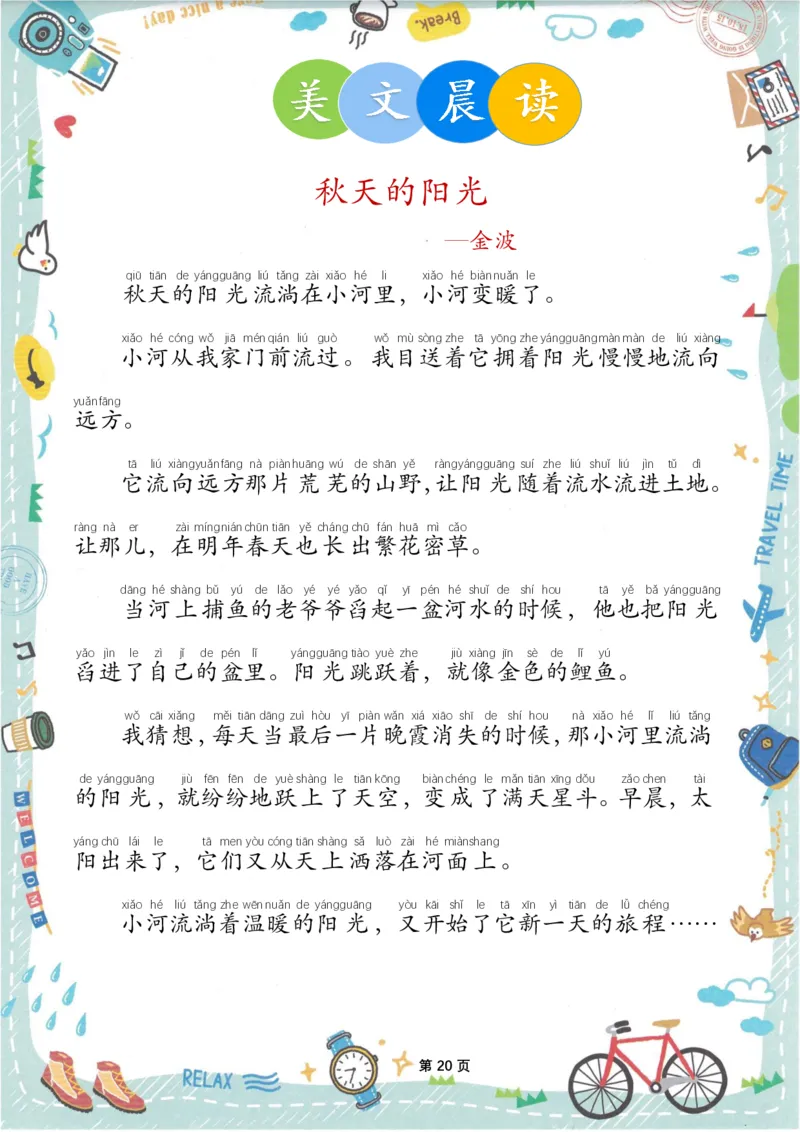 Have a nice day!
Break.
美文晨读
秋天的阳光
—金波
qiū tiān de yángguāng liú tǎng zài xiǎo hé li xiǎo hé biànnuǎn le
秋天的阳光流淌在小河里，小河变暖了。
xiǎo hé cóng wǒ jiā ménqián liú guò wǒ mù sòng zhe tā yōng zhe yángguāngmàn màn de liú xiàng
小河从我家门前流过。我目送着它拥着阳光慢慢地流向
yuǎnfāng
远方。
tā liú xiàngyuǎnfāng nà piànhuāng wú de shān yě ràngyángguāng suí zhe liú shuǐ liú jìn tǔ dì
它流向远方那片荒芜的山野，让阳光随着流水流进土地。
ràng nà er zài míngnián chūn tiān yě cháng chū fán huā mì cǎo
让那儿，在明年春天也长出繁花密草。
dāng hé shàng bǔ yú de lǎo yé yé yǎo qǐ yī pén hé shuǐ de shí hou tā yě bǎ yángguāng
当河上捕鱼的老爷爷舀起一盆河水的时候，他也把阳光
yǎo jìn le zì jǐ de pén lǐ yángguāng tiào yuè zhe jiù xiàng jīn sè de lǐ yú
舀进了自己的盆里。阳光跳跃着，就像金色的鲤鱼。
wǒ cāi xiǎng měi tiān dāng zuì hòu yī piàn wǎn xiá xiāo shī de shí hou nà xiǎo hé lǐ liú tǎng
我猜想，每天当最后一片晚霞消失的时候，那小河里流淌
de yángguāng jiù fēn fēn de yuè shàng le tiān kōng biàn chéng le mǎn tiān xīng dǒu zǎo chen tài
的阳光，就纷纷地跃上了天空，变成了满天星斗。早晨，太
yáng chū lái le tā men yòu cóng tiān shàng sǎ luò zài hé miànshang
阳出来了，它们又从天上洒落在河面上。
xiǎo hé liú tǎng zhe wēn nuǎn de yángguāng yòu kāi shǐ le tā xīn yì tiān de lǚ chéng
小河流淌着温暖的阳光，又开始了它新一天的旅程……
TRAVEL TIME
WELCOME
RELAX
第 20 页